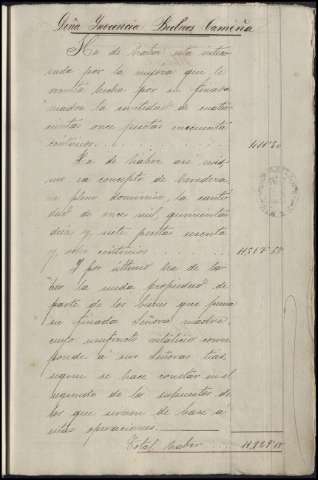 Doña Inocencia Bednos Camiña
Ha de haber esta intere-
sada por la mejora que le
resulta hecha por su finada
madre la cantidad de cuatro-
cientas once pesetas cincuenta
céntimos. . . . . . . 411'50
Ha de haber asi mis-
mo en concepto de heredera
en pleno dominio, la canti-
dad de once mil, quinientas
diez y siete pesetas
y céntimos . . . . . 11.517
Y por último ha de ha-
ber la nuda propiedad de
parte de los bienes que
su finada Señora madre,
cuyo usufructo vitalicio corres-
ponde á sus Señoras tias,
segun se hace constar en el
segundo de los supuestos de
los que sirven de base á
estas operaciones.
Total haber . . .